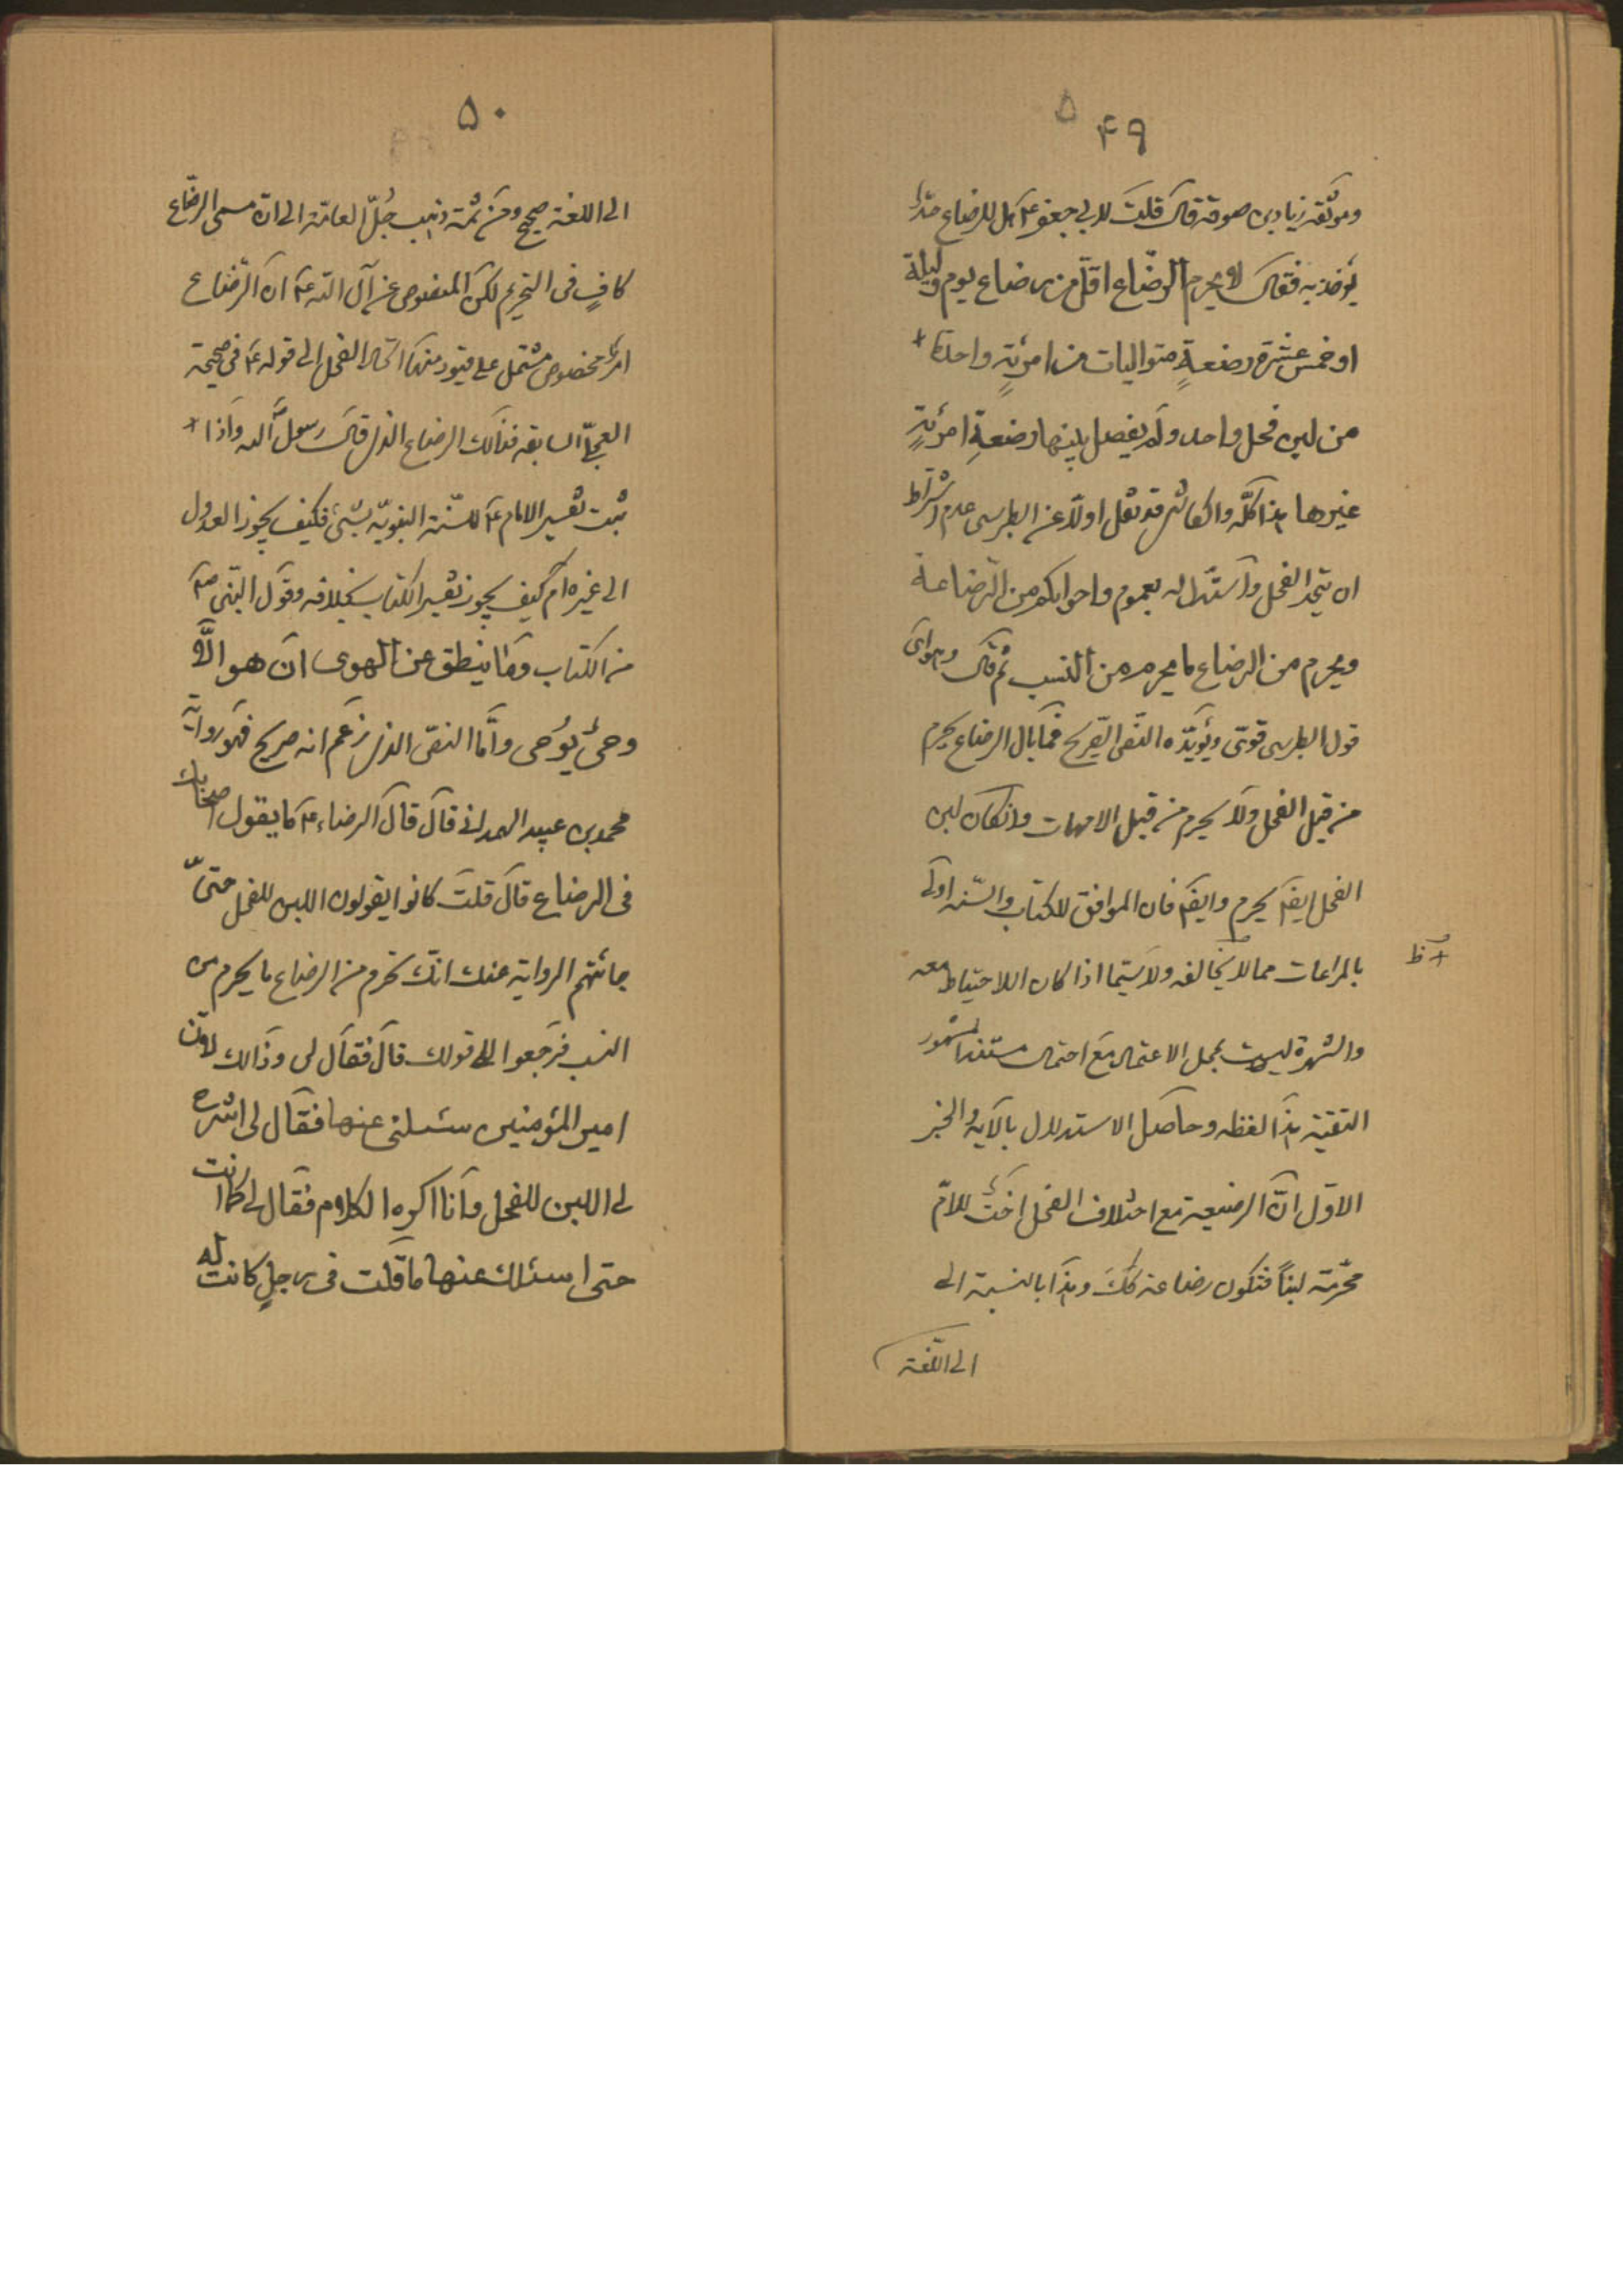 ۴۹
وموثقة زياد بن سوقة قال قلت لابي جعفر ع هل للرضاع حدّ
يؤخذ به فقال لا يحرم الرضاع اقلّ من رضاع يوم وليلة
او خمس عشرة رضعةٍ متواليات من امرئةٍ واحدة
من لبن فحل واحد ولم يفصل بينها رضعةِ امرئةٍ
غيرها هذا كلّه والكاشى قد نقل اولا عن الطبرسى عدم اشتراط
ان يتحد الفحل واستدل له بعموم واخواتكم من الرضاعة
ويحرم من الرضاع ما يحرم من النسب ثم قال وهو اى
قول الطبرسى قوىّ ويؤيّده النصّ الصّريح فما بال الرضاع يحرم
من قبل الفحل ولا يحرم من قبل الامهات وانكان لبن
الفحل ايضا يحرم وايضا فان الموافق للكتاب والسّنه اولى
بالمراعات مما لا يخالفه ولا سيّما اذا كان الاحتياط معه
والشهرة ليست بمحل الاعتماد مع احتمال مستند المشهور
التقية هذا لفظه وحاصل الاستدلال بالآية والخبر
الاوّل انّ الرضيعة مع اختلاف الفحل اختٌ للامّ
محرّمة لبناً فتكون رضاعة كك وهذا بالنسبة الى
الى اللّغة
ظ
۵۰
الى اللغة صحيح ومن ثمة ذهب جُلّ العامّة الى انّ مسمى الرضّاع
كافٍ فى التحريم لكن المنصوص عن آل الله ع ان الرّضاع
امرٌ مخصوص مشتمل على قيود منها اتحاد الفحل الى قوله ع فى صحيحة
العجلىّ السابقه فذالك الرضاع الذى قال رسول الله واذا
ثبت تفسير الامام ع للسّنة النبويّة بشئ فكيف يجوز العدول
الى غيره ام كيف يجوز تفسير الكتاب بخلافه وقول النّبى ص
من الكتاب وما ينطق عن الهوى ان هو الّا
وحىٌ يُوحى وامّا النصّ الذى زعم انه صريح فهو رواية
محمد بن عبيد الهمدانى قال قال الرضاء ع ما يقول اصحابك
فى الرضاع قال قلت كانوا يقولون اللبن للفحل حتىّ
جائتهم الرواية عنك انّك تحرم من الرضاع ما يحرم من
النسب فرجعوا الى قولك قال فقال لى وذالك لانّ
امير المؤمنين سئلنى عنها فقال لى اشرح
لى اللبن للفحل وانا اكره الكلام فقال لى كما انت
حتى اسئلك عنها ما قلت فى رجلٍ كانت له